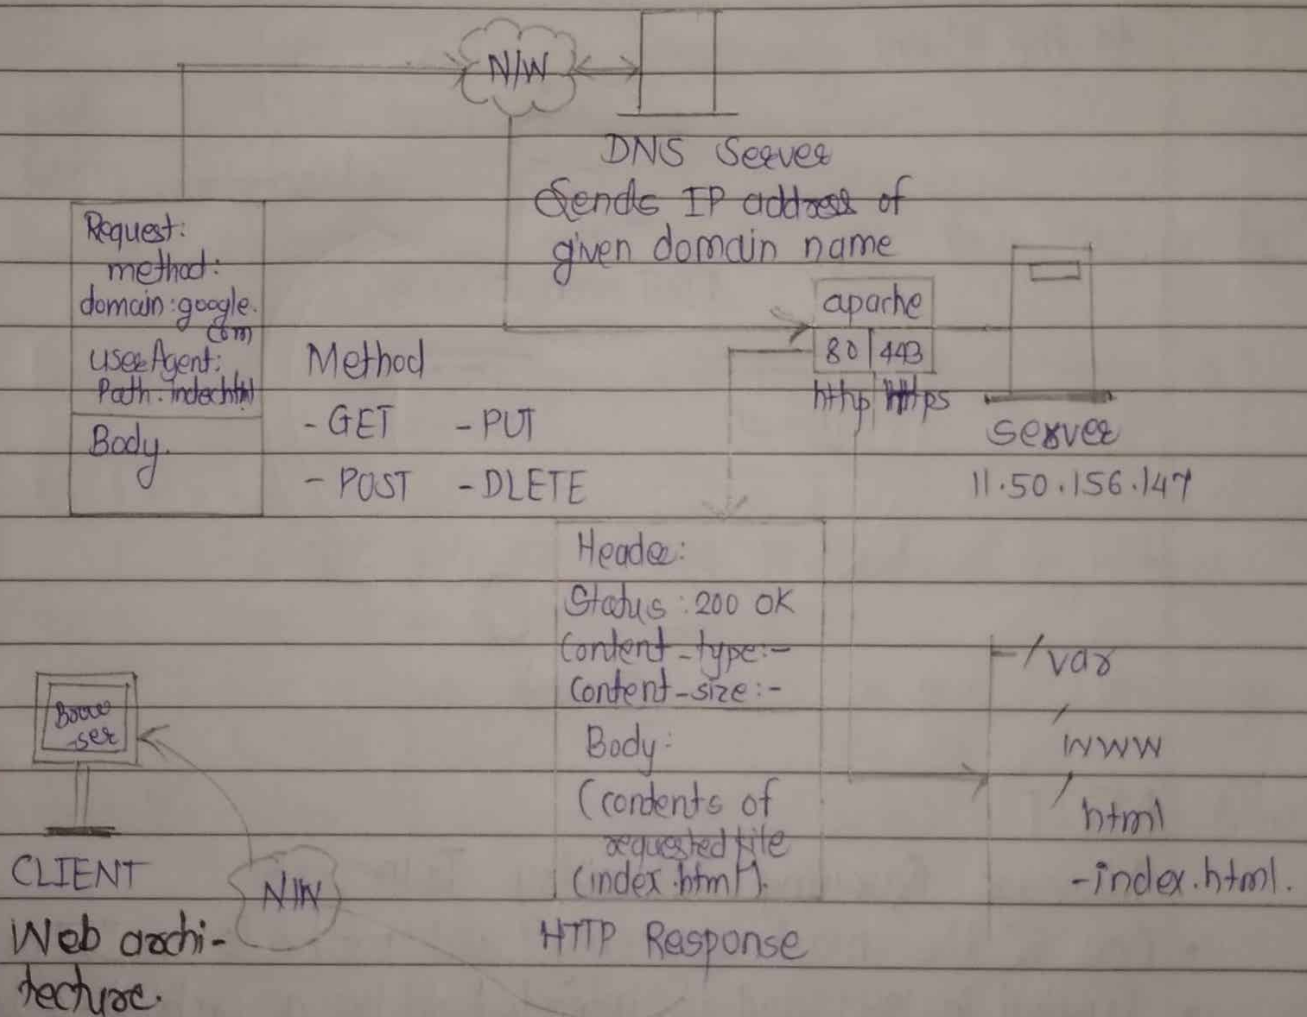 N/W
DNS Server
Sends IP address of
given domain name
Request:
method:
domain:google.
com)
userAgent:
Path:index.html
Body.
Method
- GET - PUT
- POST - DLETE
apache
80 | 443
http https
server
11.50.156.147
Header:
Status: 200 OK
Content-type:-
Content-size:-
Body:
(contents of
requested file
(index.html).
HTTP Response
/var
/www
/html
-index.html.
Brow
-ser
CLIENT
N/W
Web archi-
tecture.